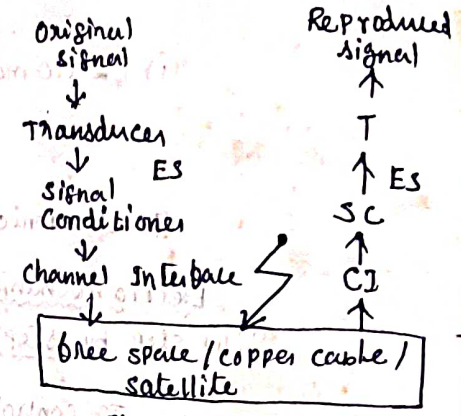 Original
signal
Transducer
ES
Signal
Conditioner
Channel Interface
Reproduced
signal
T
ES
SC
CI
free space / copper cable /
satellite